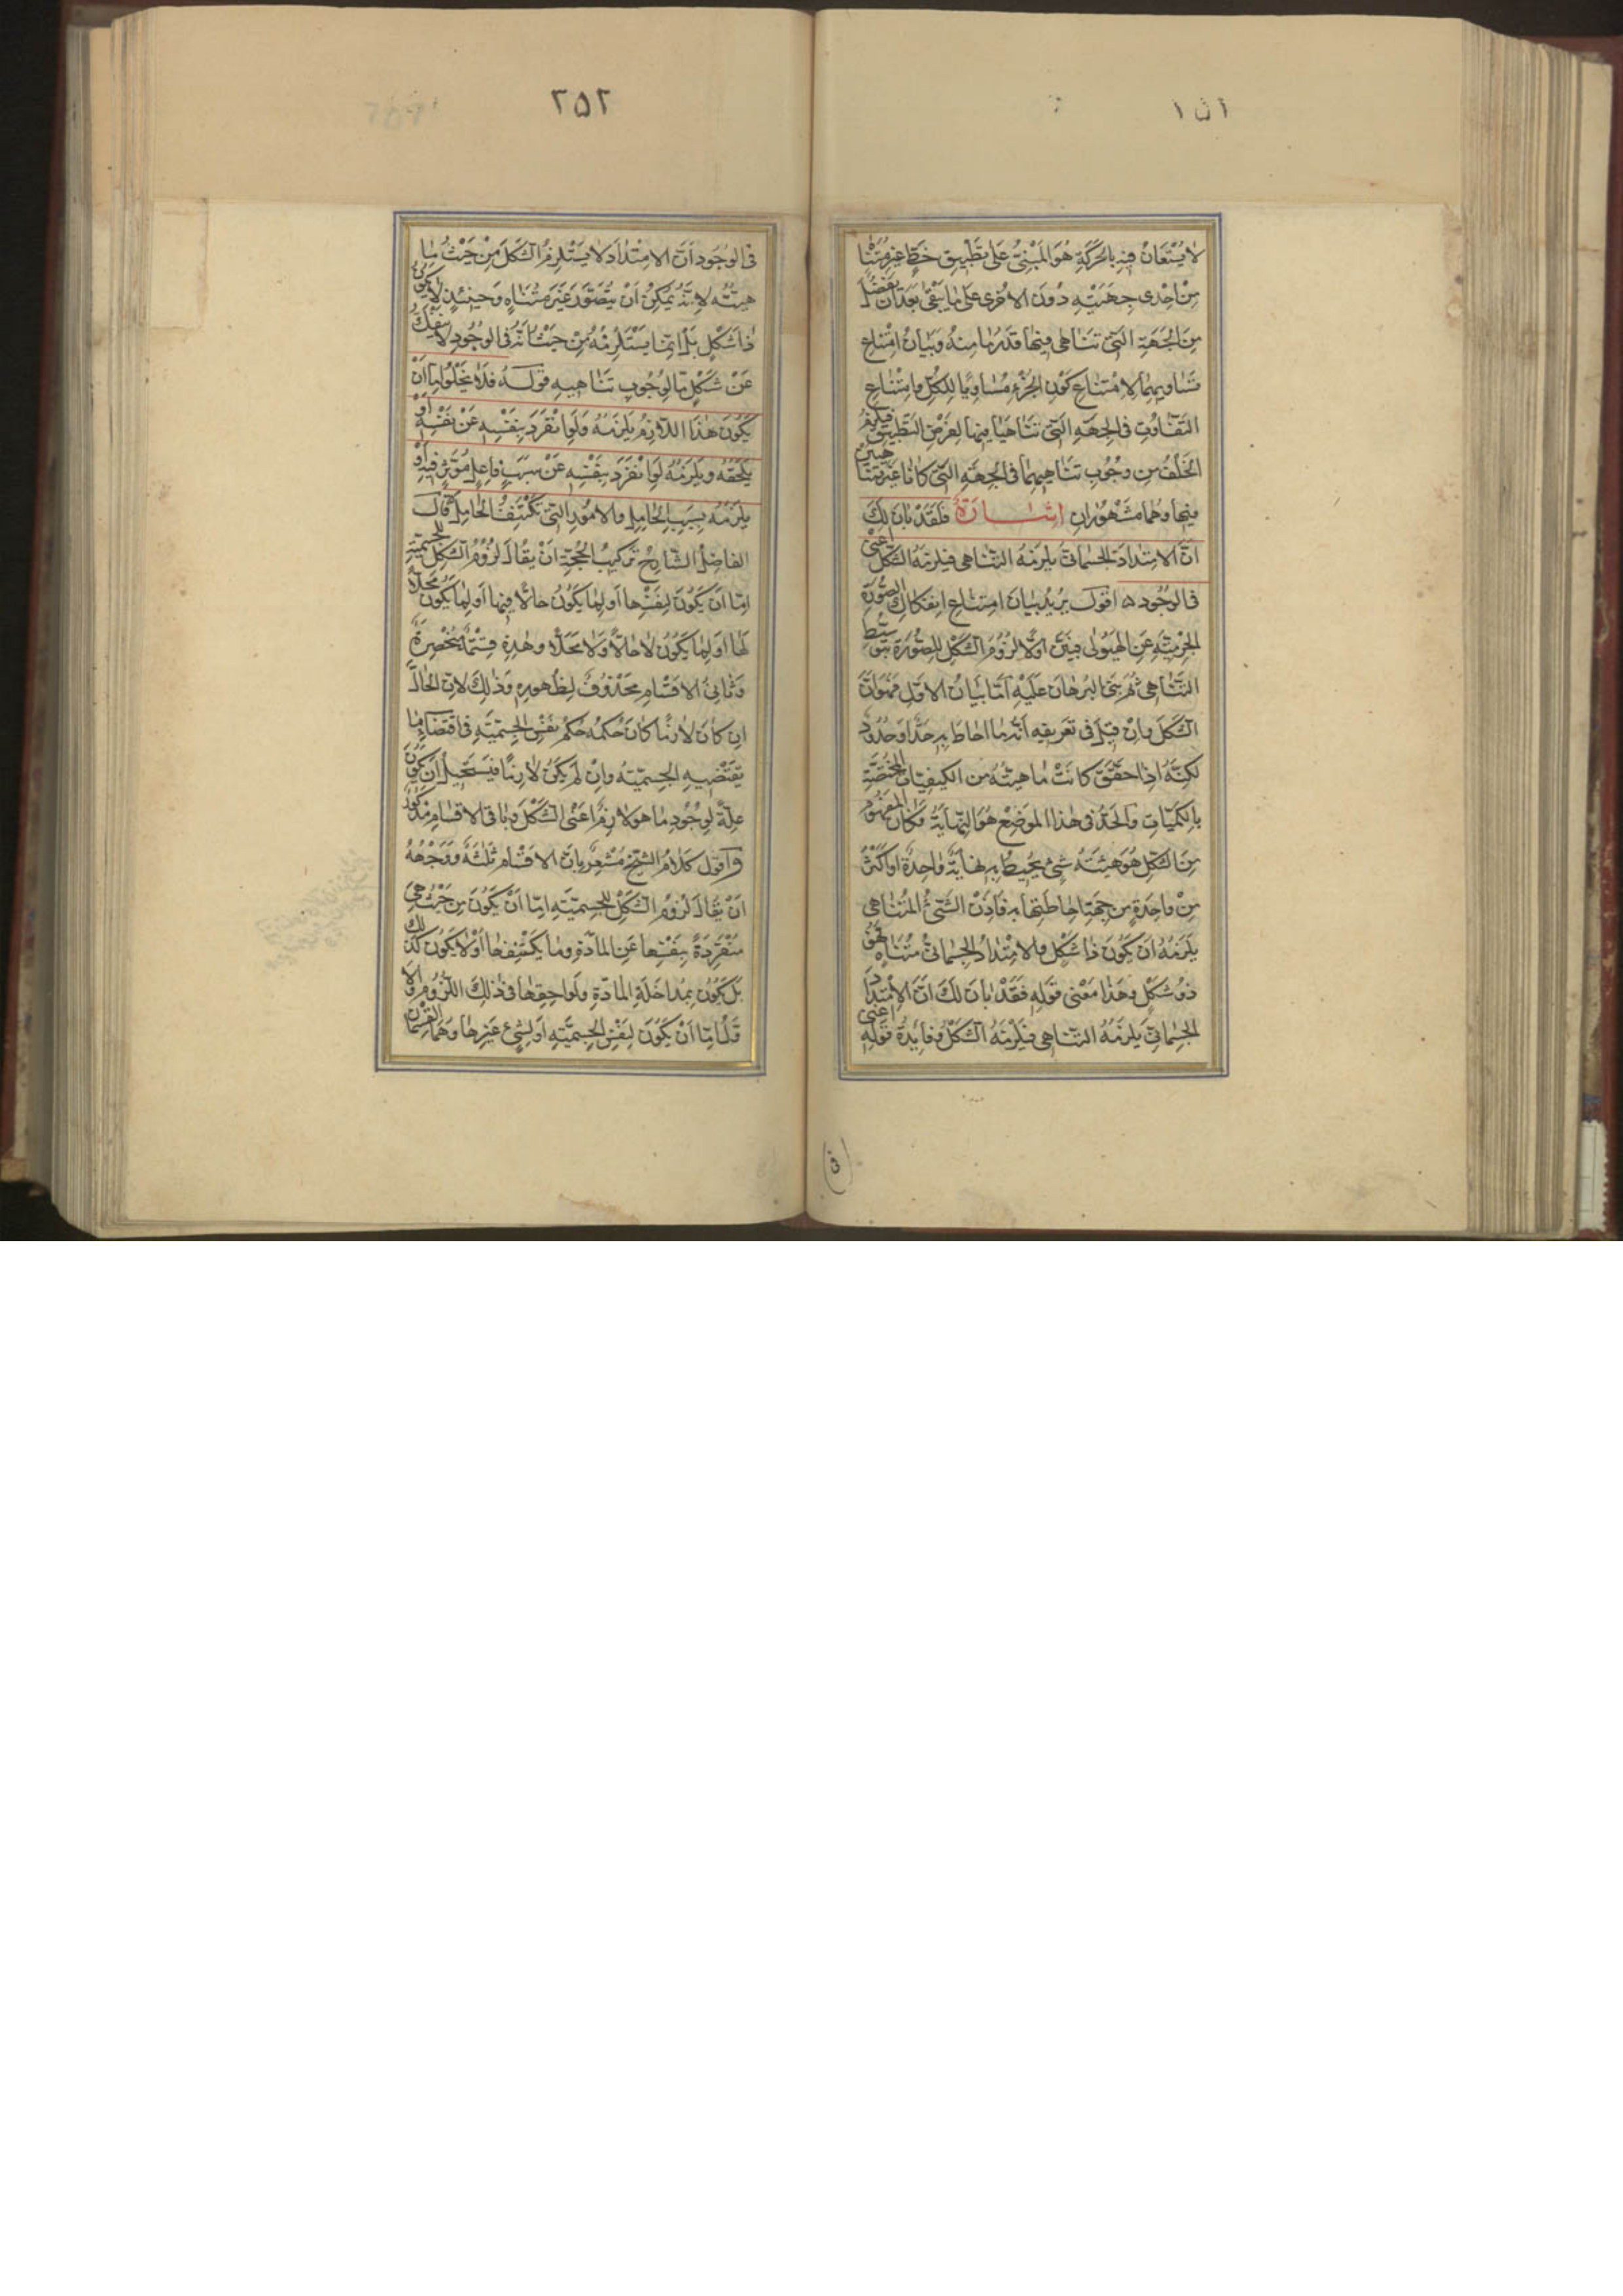 ٢٥١
لا يُسْتَعَانُ فيهِ بالحَرَكَةِ هُوَ المَبْنِيُّ عَلى تَطْبِيقِ خَطٍّ غَيْرِ مُتَنَاهٍ
مِنْ اِحْدى جِهَتَيْهِ دُونَ الاُخْرى عَلى مَا يَبْقى بَعْدَ اَنْ يُفْصَلَ
مِنَ الجِهَةِ الَّتى تَنَاهى فيهَا قَدْرُ مَا مِنهُ وَبَيَانُ امْتِنَاعِ
تَسَاويهِمَا لاِمْتِنَاعِ كَوْنِ الجُزْءِ مُسَاوِيًا لِلكُلِّ وامْتِنَاعِ
التَّفَاوُتِ فى الجِهَةِ الَّتى تَنَاهَيَا فيهَا لِفَرْضِ التَّطْبيقِ فيَلْزَمُ
الخَلْفُ مِن وُجُوبِ تَنَاهيهِمَا فى الجِهَةِ الَّتى كَانَا غَيْرَ مُتَنَاهِيَيْنِ
فيهَا وهُمَا مَشْهُورَانِ اِشَارَةٌ فَلَقَدْ بَانَ لَكَ
اَنَّ الاِمْتِدَادَ الجِسْمَانىَّ يَلْزَمُهُ التَّنَاهى فيَلْزَمُهُ الشَّكْلُ اَعْنى
فى الوُجُودِ ه اَقُولُ يُريدُ بَيَانَ امْتِنَاعِ انفِكَاكِ الصُّورَةِ
الجِرْمِيَّةِ عَنِ الهَيُولى فبَيَّنَ اَوَّلًا لُزُومَ الشَّكْلِ لِلصُّورَةِ بتَوَسُّطِ
التَّنَاهى ثُمَّ بَنَى البُرهَانَ عَلَيْهِ اَمَّا بَيَانُ الاَوَّلِ فَهُوَ اَنَّ
الشَّكْلَ وَاِنْ قيلَ فى تَعْريفِهِ اَنَّهُ مَا اَحَاطَ بِهِ حَدٌّ اَوحُدُودٌ
لكِنَّهُ اِذَا حُقِّقَ كَانَتْ مَاهِيَّتُهُ مِنَ الكَيفِيَّاتِ المُخْتَصَّةِ
بالكَمِّيَاتِ وَالحَدُّ فى هٰذَا المَوضِعِ هُوَ النِّهَايَةُ وَكَانَ المَفْهُومُ
مِنَ الشَّكْلِ هُوَ هَيْئَةُ شَىْءٍ يُحيطُ بِهِ نِهَايَةٌ وَاحِدَةٌ اَو اَكْثَرُ
مِنْ وَاحِدَةٍ مِن جِهَةِ اِحَاطَتِهَا بِهِ فَاِذَنْ الشَّىْءُ المُتَنَاهى
يَلْزَمُهُ اَنْ يَكُونَ ذَا شَكْلٍ وَالاِمْتِدَادُ الجِسْمَانىُّ مُتَنَاهٍ فَهُوَ
ذُو شَكْلٍ وهٰذَا مَعْنى قَوْلِهِ فَقَدْ بَانَ لَكَ اَنَّ الاِمْتِدَادَ
الجِسْمَانىَّ يَلْزَمُهُ التَّنَاهى فيَلْزَمُهُ الشَّكْلُ وفَائِدَةُ قَوْلِهِ اَعْنى
٢٥٢
فى الوُجُودِ اَنَّ الاِمْتِدَادَ لا يَسْتَلْزِمُ الشَّكْلَ مِنْ حَيْثُ مَا
هِيَّتُه لاَنَّهُ يُمْكِنُ اَنْ يُتَصَوَّرَ غَيْرَ مُتَنَاهٍ وَحينَئِذٍ لَا يَكُونُ
ذَا شَكْلٍ بَلْ اِنَّمَا يَسْتَلْزِمُهُ مِنْ حَيْثُ اَنَّهُ فى الوُجُودِ لَا يَنْفَكُّ
عَنْ شَكْلٍ مَّا لِوُجُوبِ تَنَاهِيهِ قَولُهُ فَلَا يَخْلُو اِمَّا اَنْ
يَكُونَ هٰذَا اللَّازِمُ يَلْزَمُهُ وَلَوِ انْفَرَدَ بِنَفْسِهِ عَنْ نَفْسِهِ اَوْ
يَلْحَقُهُ ويَلْزَمُهُ لَوِ انْفَرَدَ بِنَفْسِهِ عَنْ سَبَبٍ فَاعِلٍ مُؤَثِّرٍ فيهِ اَوْ
يَلْزَمُهُ بِسَبَبِ الحَامِلِ وَالاُمُورِ الَّتى تَكْتَنِفُ الحَامِلَ قَالَ
الفَاضِلُ الشَّارِحُ تَركِيبُ الحُجَّةِ اَنْ يُقَالَ لُزُومُ الشَّكْلِ لِلجِسْمِيَّةِ
اِمَّا اَنْ يَكُونَ لِنَفْسِهَا اَو لِمَا يَكُونُ حَالًّا فيهَا اَو لِمَا يَكُونُ مَحَلًّا
لَهَا اَو لِمَا يَكُونُ لَا حَالًّا وَلَا مَحَلًّا وهٰذِهِ قِسْمَةٌ مُنْحَصِرَةٌ
وَثَانِى الاَقْسَامِ مَحْذُوفٌ لِظُهُورِهِ وَذٰلِكَ لاَنَّ الحَالَّ
اِن كَانَ لَازِمًا كَانَ حُكْمُه حُكْمَ نَفْسِ الجِسْمِيَّةِ فى اقْتِضَاءِ مَا
يَقْتَضيهِ الجِسْمِيَّةُ وَاِنْ لَمْ يَكُنْ لَازِمًا فيَسْتَحيلُ اَنْ يَكُونَ
عِلَّةً لِوُجُودِ مَا هُوَ لَازِمٌ اَعْنى الشَّكْلَ وبَاقى الاَقْسَامِ مَذْكُورٌ
وَاَقُولُ كَلَامُ الشَّيْخِ مُشْعِرٌ بِاَنَّ الاَقْسَامَ ثَلٰثَةٌ وَوَجْهُهُ
اَنْ يُقَالَ لُزُومُ الشَّكْلِ لِلجِسْمِيَّةِ اِمَّا اَنْ يَكُونَ مِن حَيْثُ هِىَ
مُنْفَرِدَةً بِنَفْسِهَا عَنِ المَادَّةِ ومَا يَكْتَنِفُهَا اَوْ لَا يَكُونَ كَذٰلِكَ
بَلْ يَكُونُ بِمُدَاخَلَةِ المَادَّةِ وَلَوَاحِقِهَا فى ذٰلِكَ اللُّزُومِ وَالاَ
وَّلُ اِمَّا اَنْ يَكُونَ لِنَفْسِ الجِسْمِيَّةِ اَو لِشَىْءٍ غَيْرِهَا وَهُمَا القِسْمَانِ